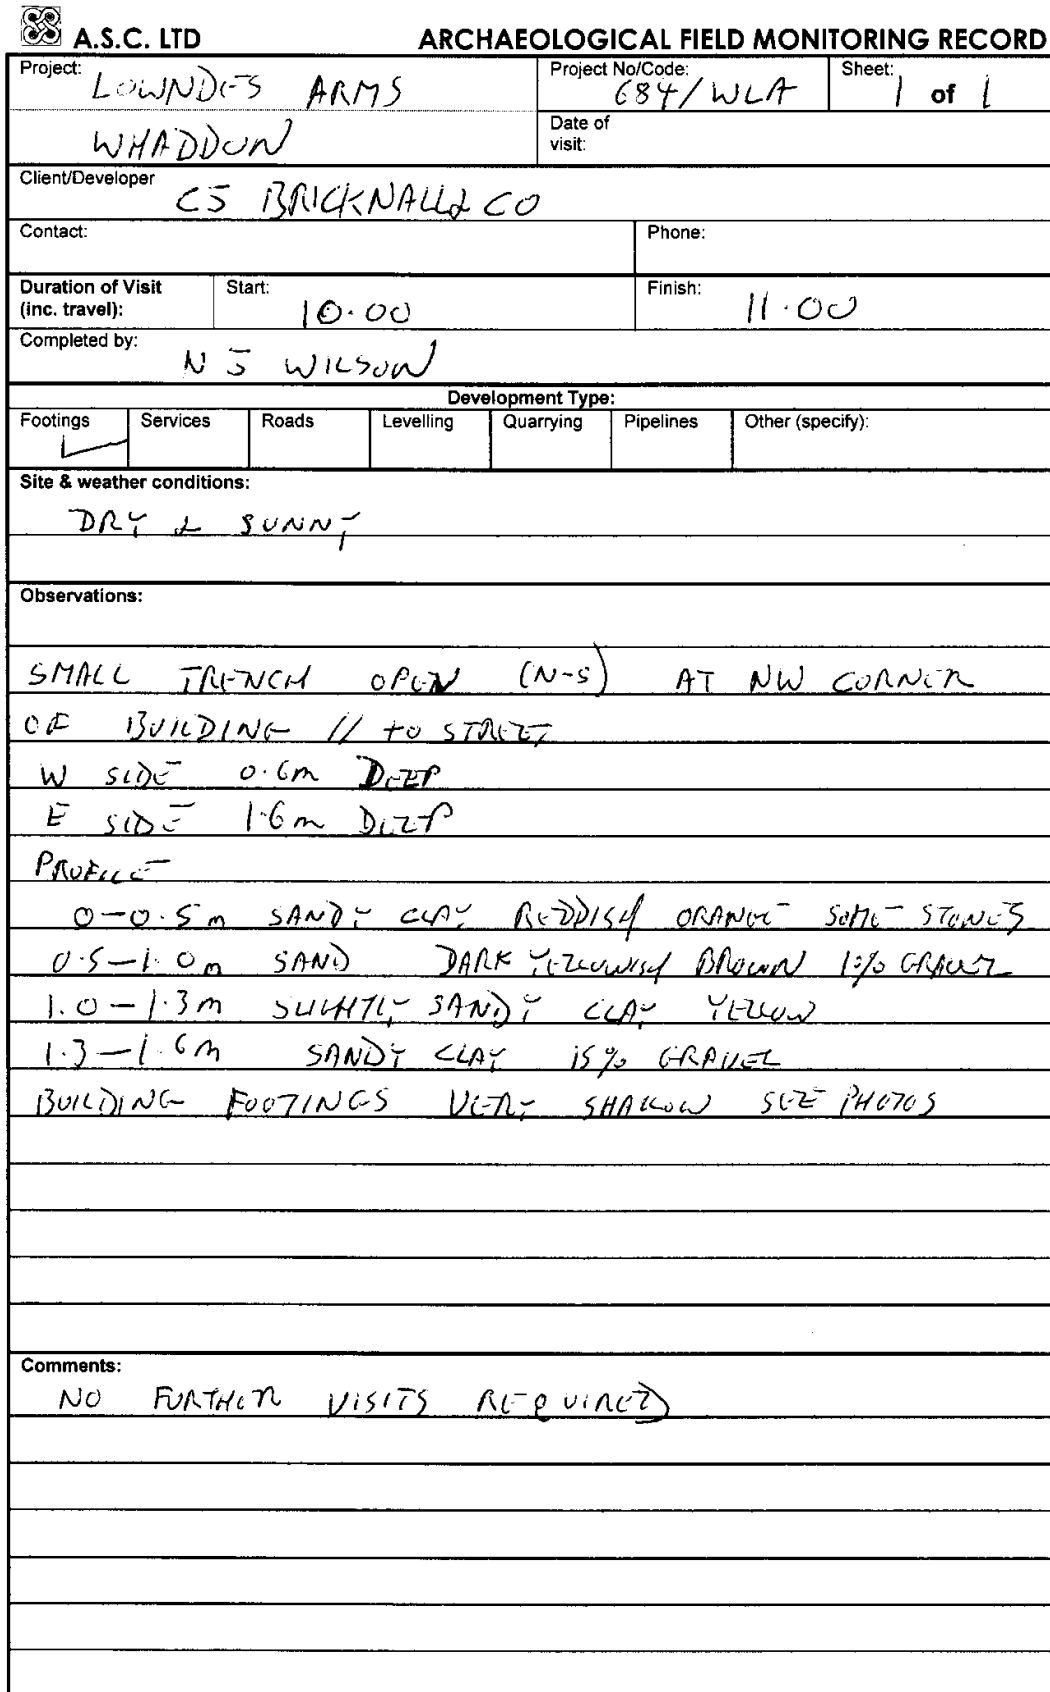 A.S.C. LTD ARCHAEOLOGICAL FIELD MONITORING RECORD
Project: LOWNDES ARMS
Project No/Code: 684/WLA
Sheet: 1 of 1
WHADDON
Date of visit:
Client/Developer CJ BRICKNALL & CO
Contact:
Phone:
Duration of Visit (inc. travel):
Start: 10.00
Finish: 11.00
Completed by: N J WILSON
Development Type:
Footings Services Roads Levelling Quarrying Pipelines Other (specify):
Site & weather conditions:
DRY & SUNNY
Observations:
SMALL TRENCH OPEN (N-S) AT NW CORNER
OF BUILDING // to STREET
W SIDE 0.6m DEEP
E SIDE 1.6m DEEP
PROFILE
0-0.5m SANDY CLAY REDDISH ORANGE SOME STONES
0.5-1.0m SAND DARK YELLOWISH BROWN 1% GRAVEL
1.0-1.3m SLIGHTLY SANDY CLAY YELLOW
1.3-1.6m SANDY CLAY 15% GRAVEL
BUILDING FOOTINGS VERY SHALLOW SEE PHOTOS
Comments:
NO FURTHER VISITS REQUIRED